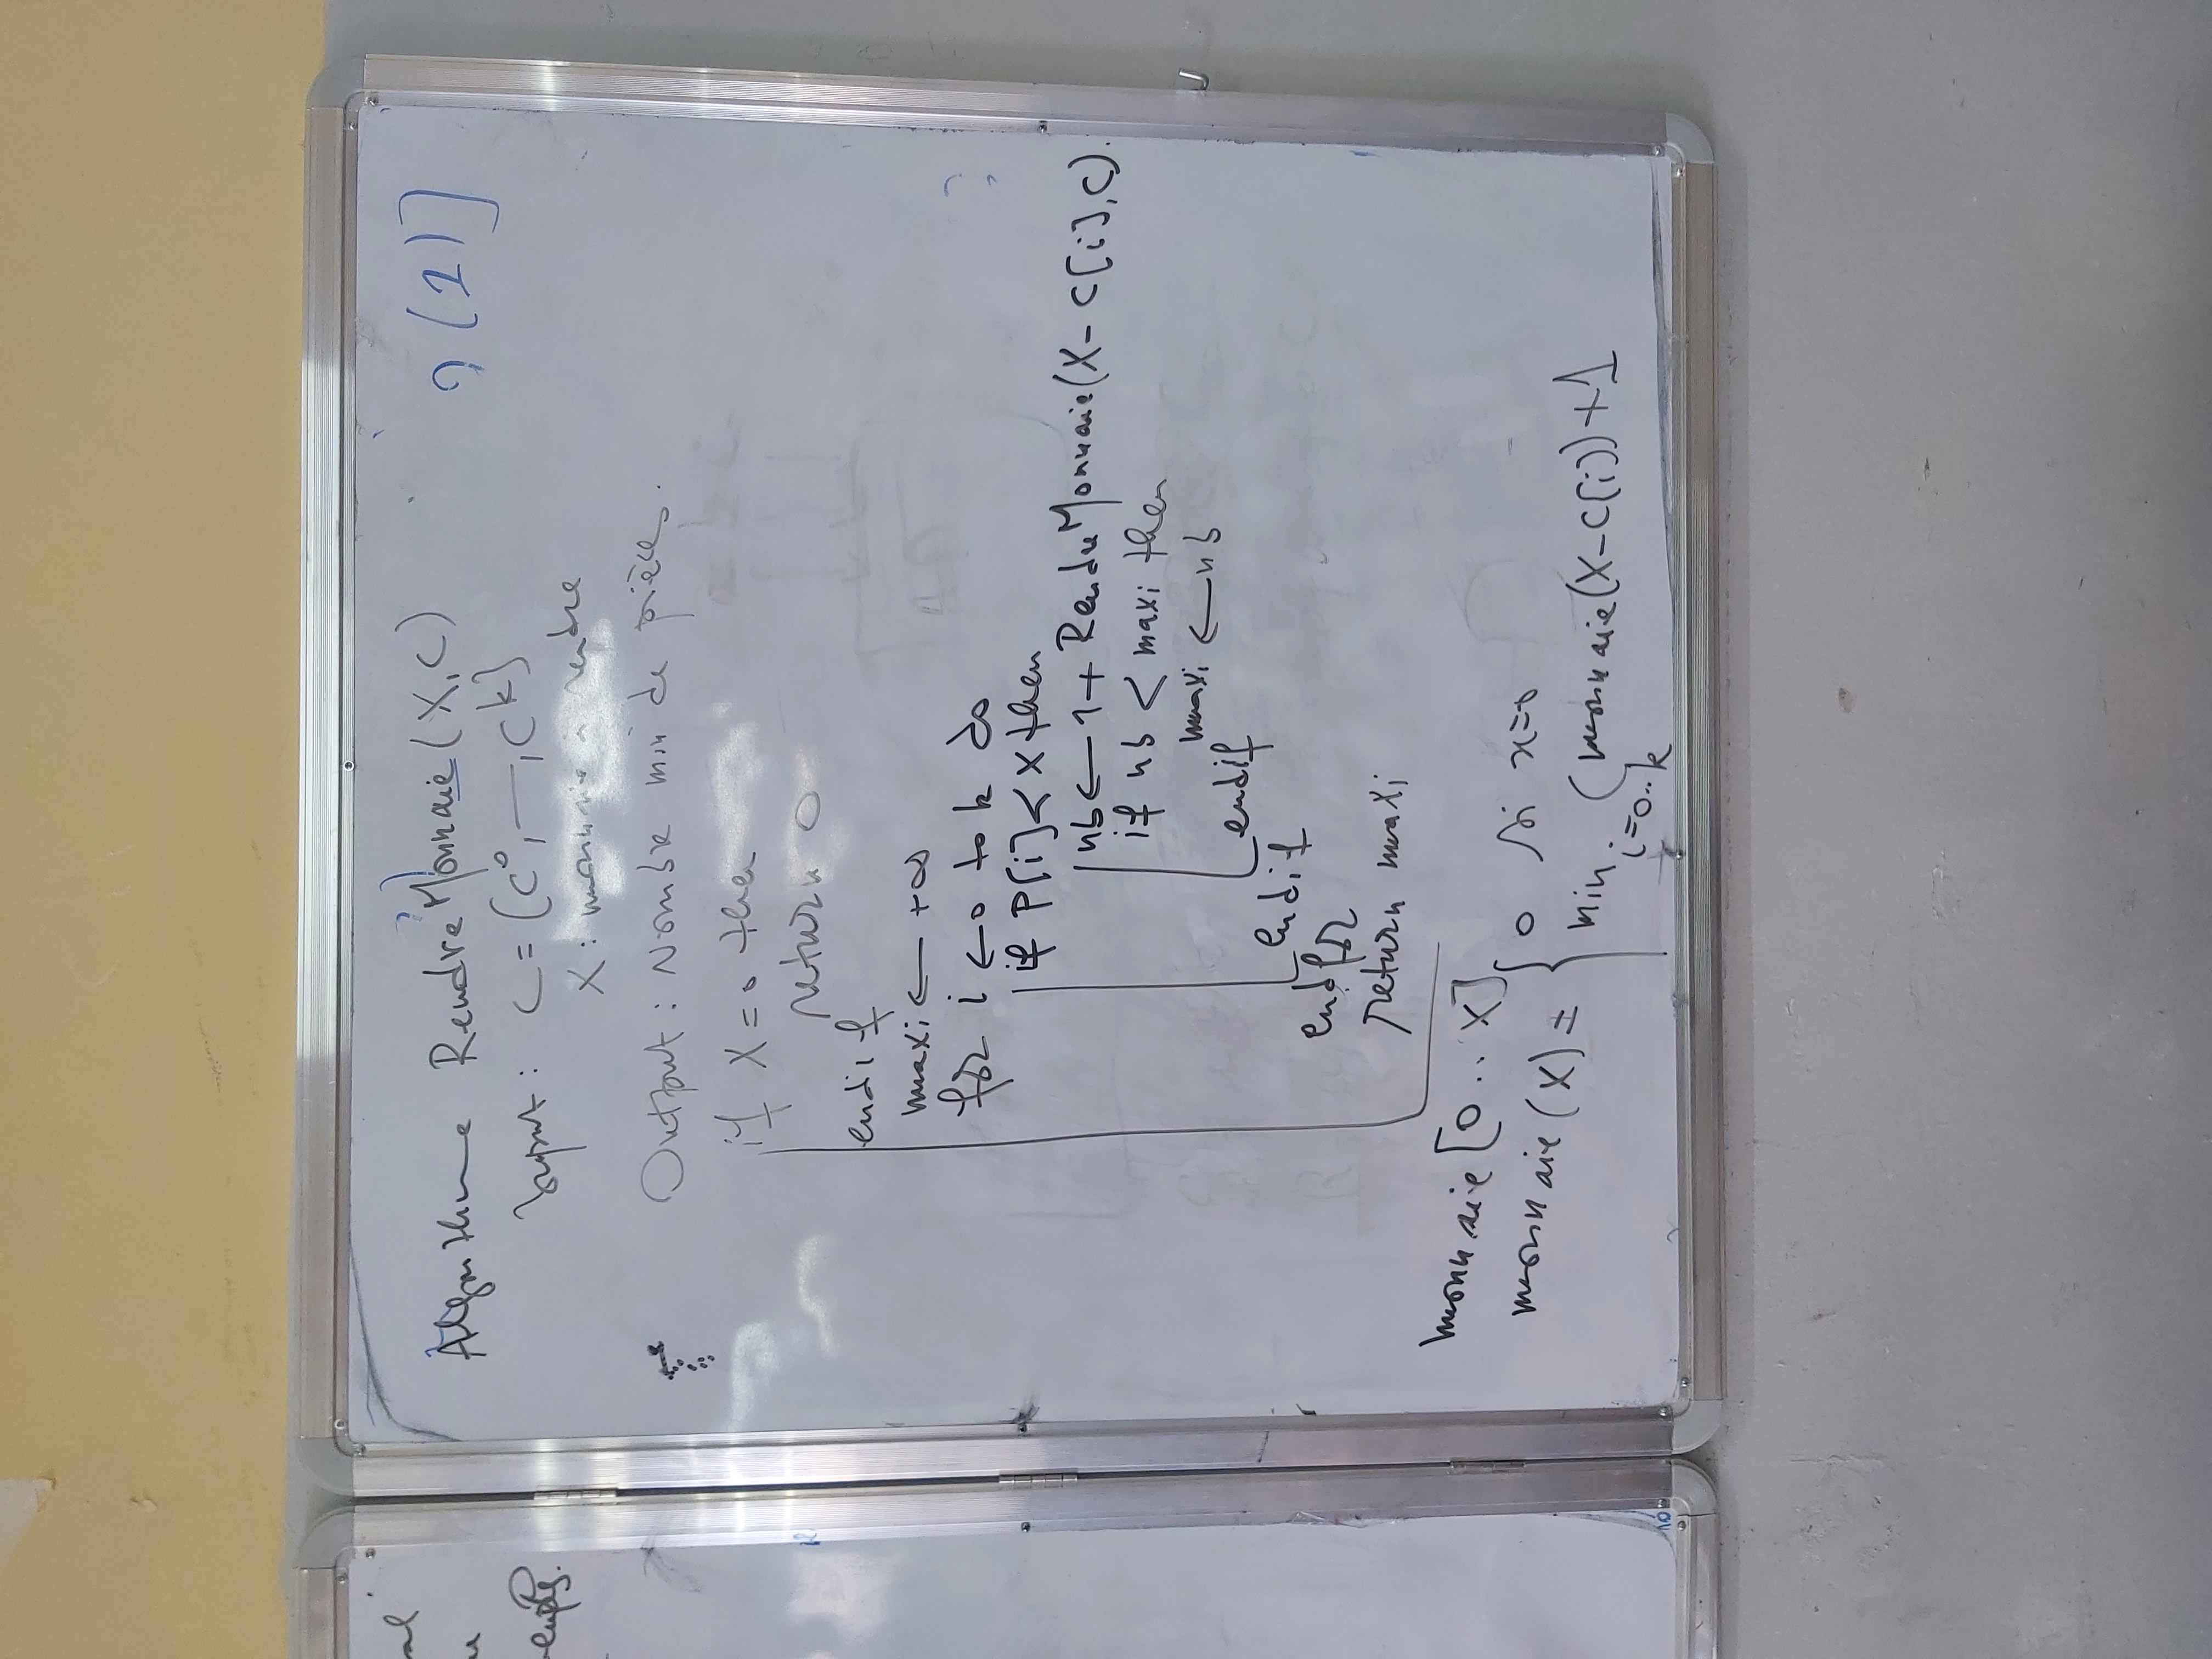 al
u
? (1)]
Algorithme RendreMonnaie (X, C)
Input : C = {c⁰, —, cᵏ}
X : monnaie à rendre
Output : Nombre min de pièces.
if X = 0 then
return 0
endif
maxi ← +∞
for i ← 0 to k do
if P[i] < X then
nb ← 1 + RendreMonnaie(X - C[i], C).
if nb < maxi then
maxi ← nb
endif
endif
endfor
return maxi
monnaie [0 .. X]
monnaie (X) = { 0 si x=0
min (monnaie(X - C[i]) + 1
i=0..k